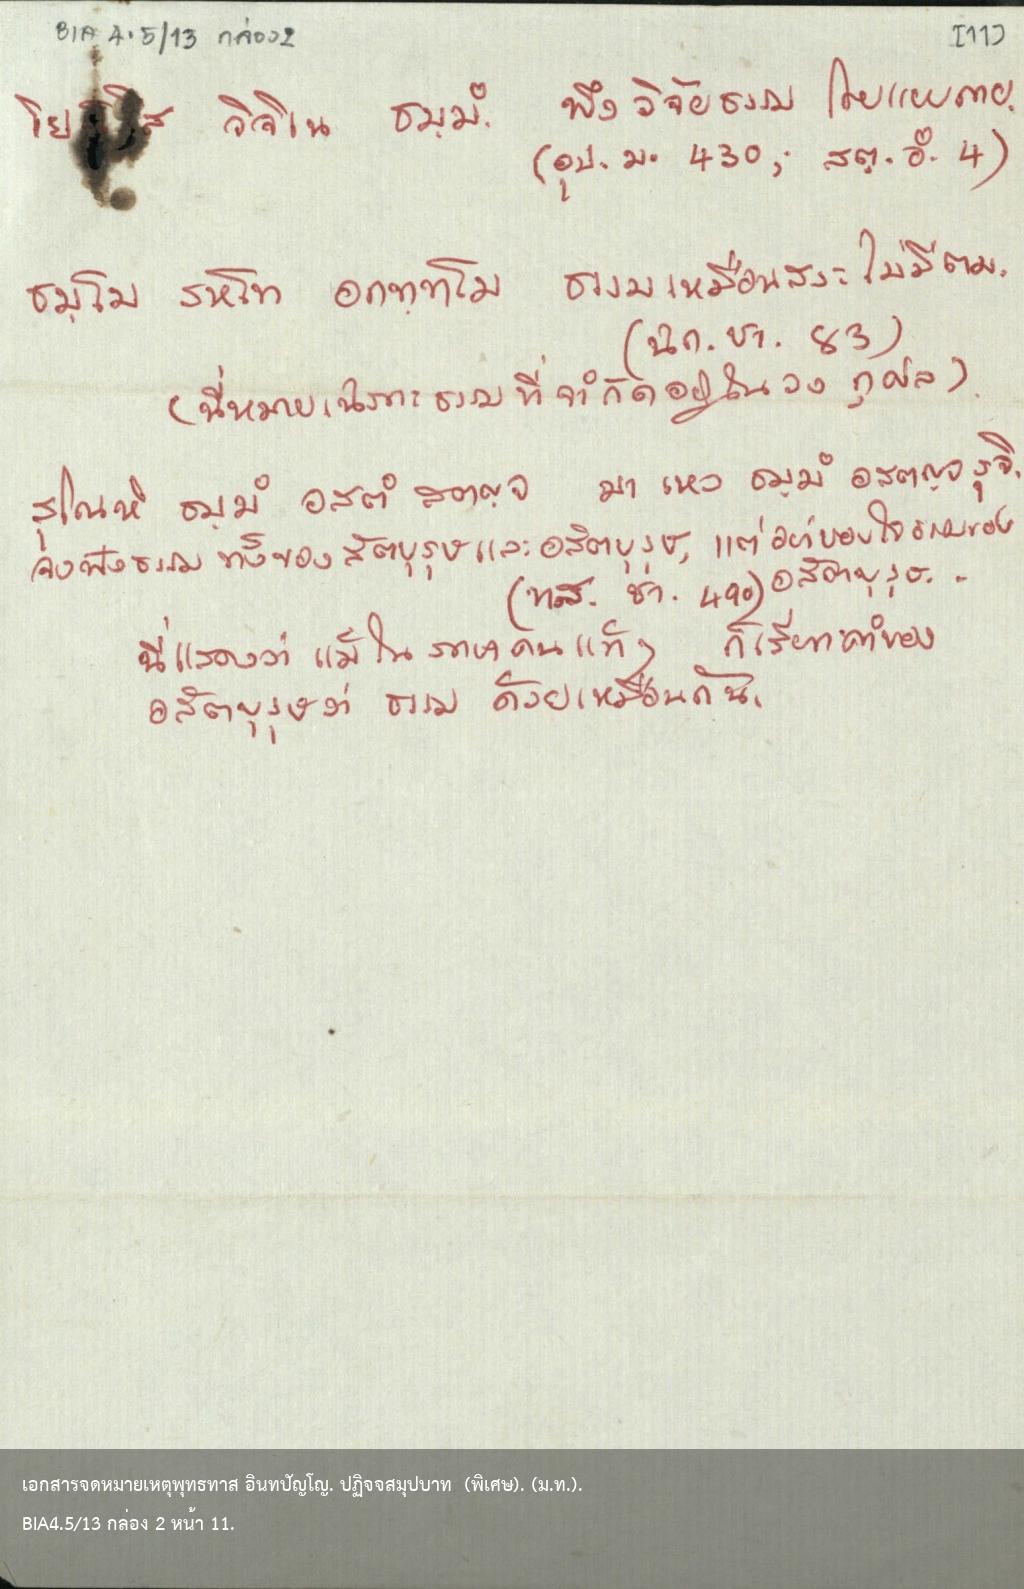 BIA 4.5/13 กล่อง2 [11]
โย วิจิเน ธมฺมํ. พึงวิจัยธรรม โดยแยบคาย.
(อุป. ม. 430; สตฺ. อํ. 4)
ธมฺโม รหโท อกทฺทโม ธรรมเหมือนสระไม่มีตม.
(นิก. ชา. 83)
(นี่หมายเฉพาะธรรมที่จำกัดอยู่ในวง กุศล).
สุโณหิ ธมฺมํ อสตํ สตญฺจ มา เหว ธมฺมํ อสตญฺจ รุจิ.
จงฟังธรรม ทั้งของ สัตบุรุษและอสัตบุรุษ, แต่อย่าชอบใจธรรมของ
(ทส. ชา. 490) อสัตบุรุษ.
นี่แสดงว่า แม้ใน ก็เรียกคำของ
อสัตบุรุษว่า ธรรม ด้วยเหมือนกัน.
เอกสารจดหมายเหตุพุทธทาส อินทปัญโญ. ปฏิจจสมุปบาท (พิเศษ). (ม.ท.).
BIA4.5/13 กล่อง 2 หน้า 11.